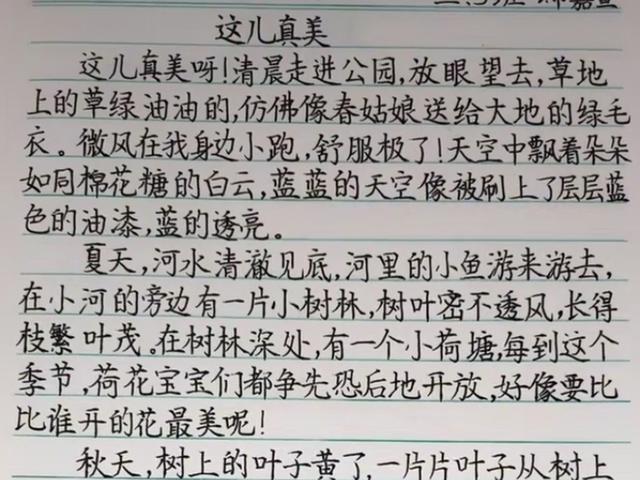 这儿真美
这儿真美呀!清晨走进公园,放眼望去,草地
上的草绿油油的,仿佛像春姑娘送给大地的绿毛
衣。微风在我身边小跑,舒服极了!天空中飘着朵朵
如同棉花糖的白云,蓝蓝的天空像被刷上了层层蓝
色的油漆,蓝的透亮。
夏天,河水清澈见底,河里的小鱼游来游去,
在小河的旁边有一片小树林,树叶密不透风,长得
枝繁叶茂。在树林深处,有一个小荷塘,每到这个
季节,荷花宝宝们都争先恐后地开放,好像要比
比谁开的花最美呢!
秋天,树上的叶子黄了,一片片叶子从树上